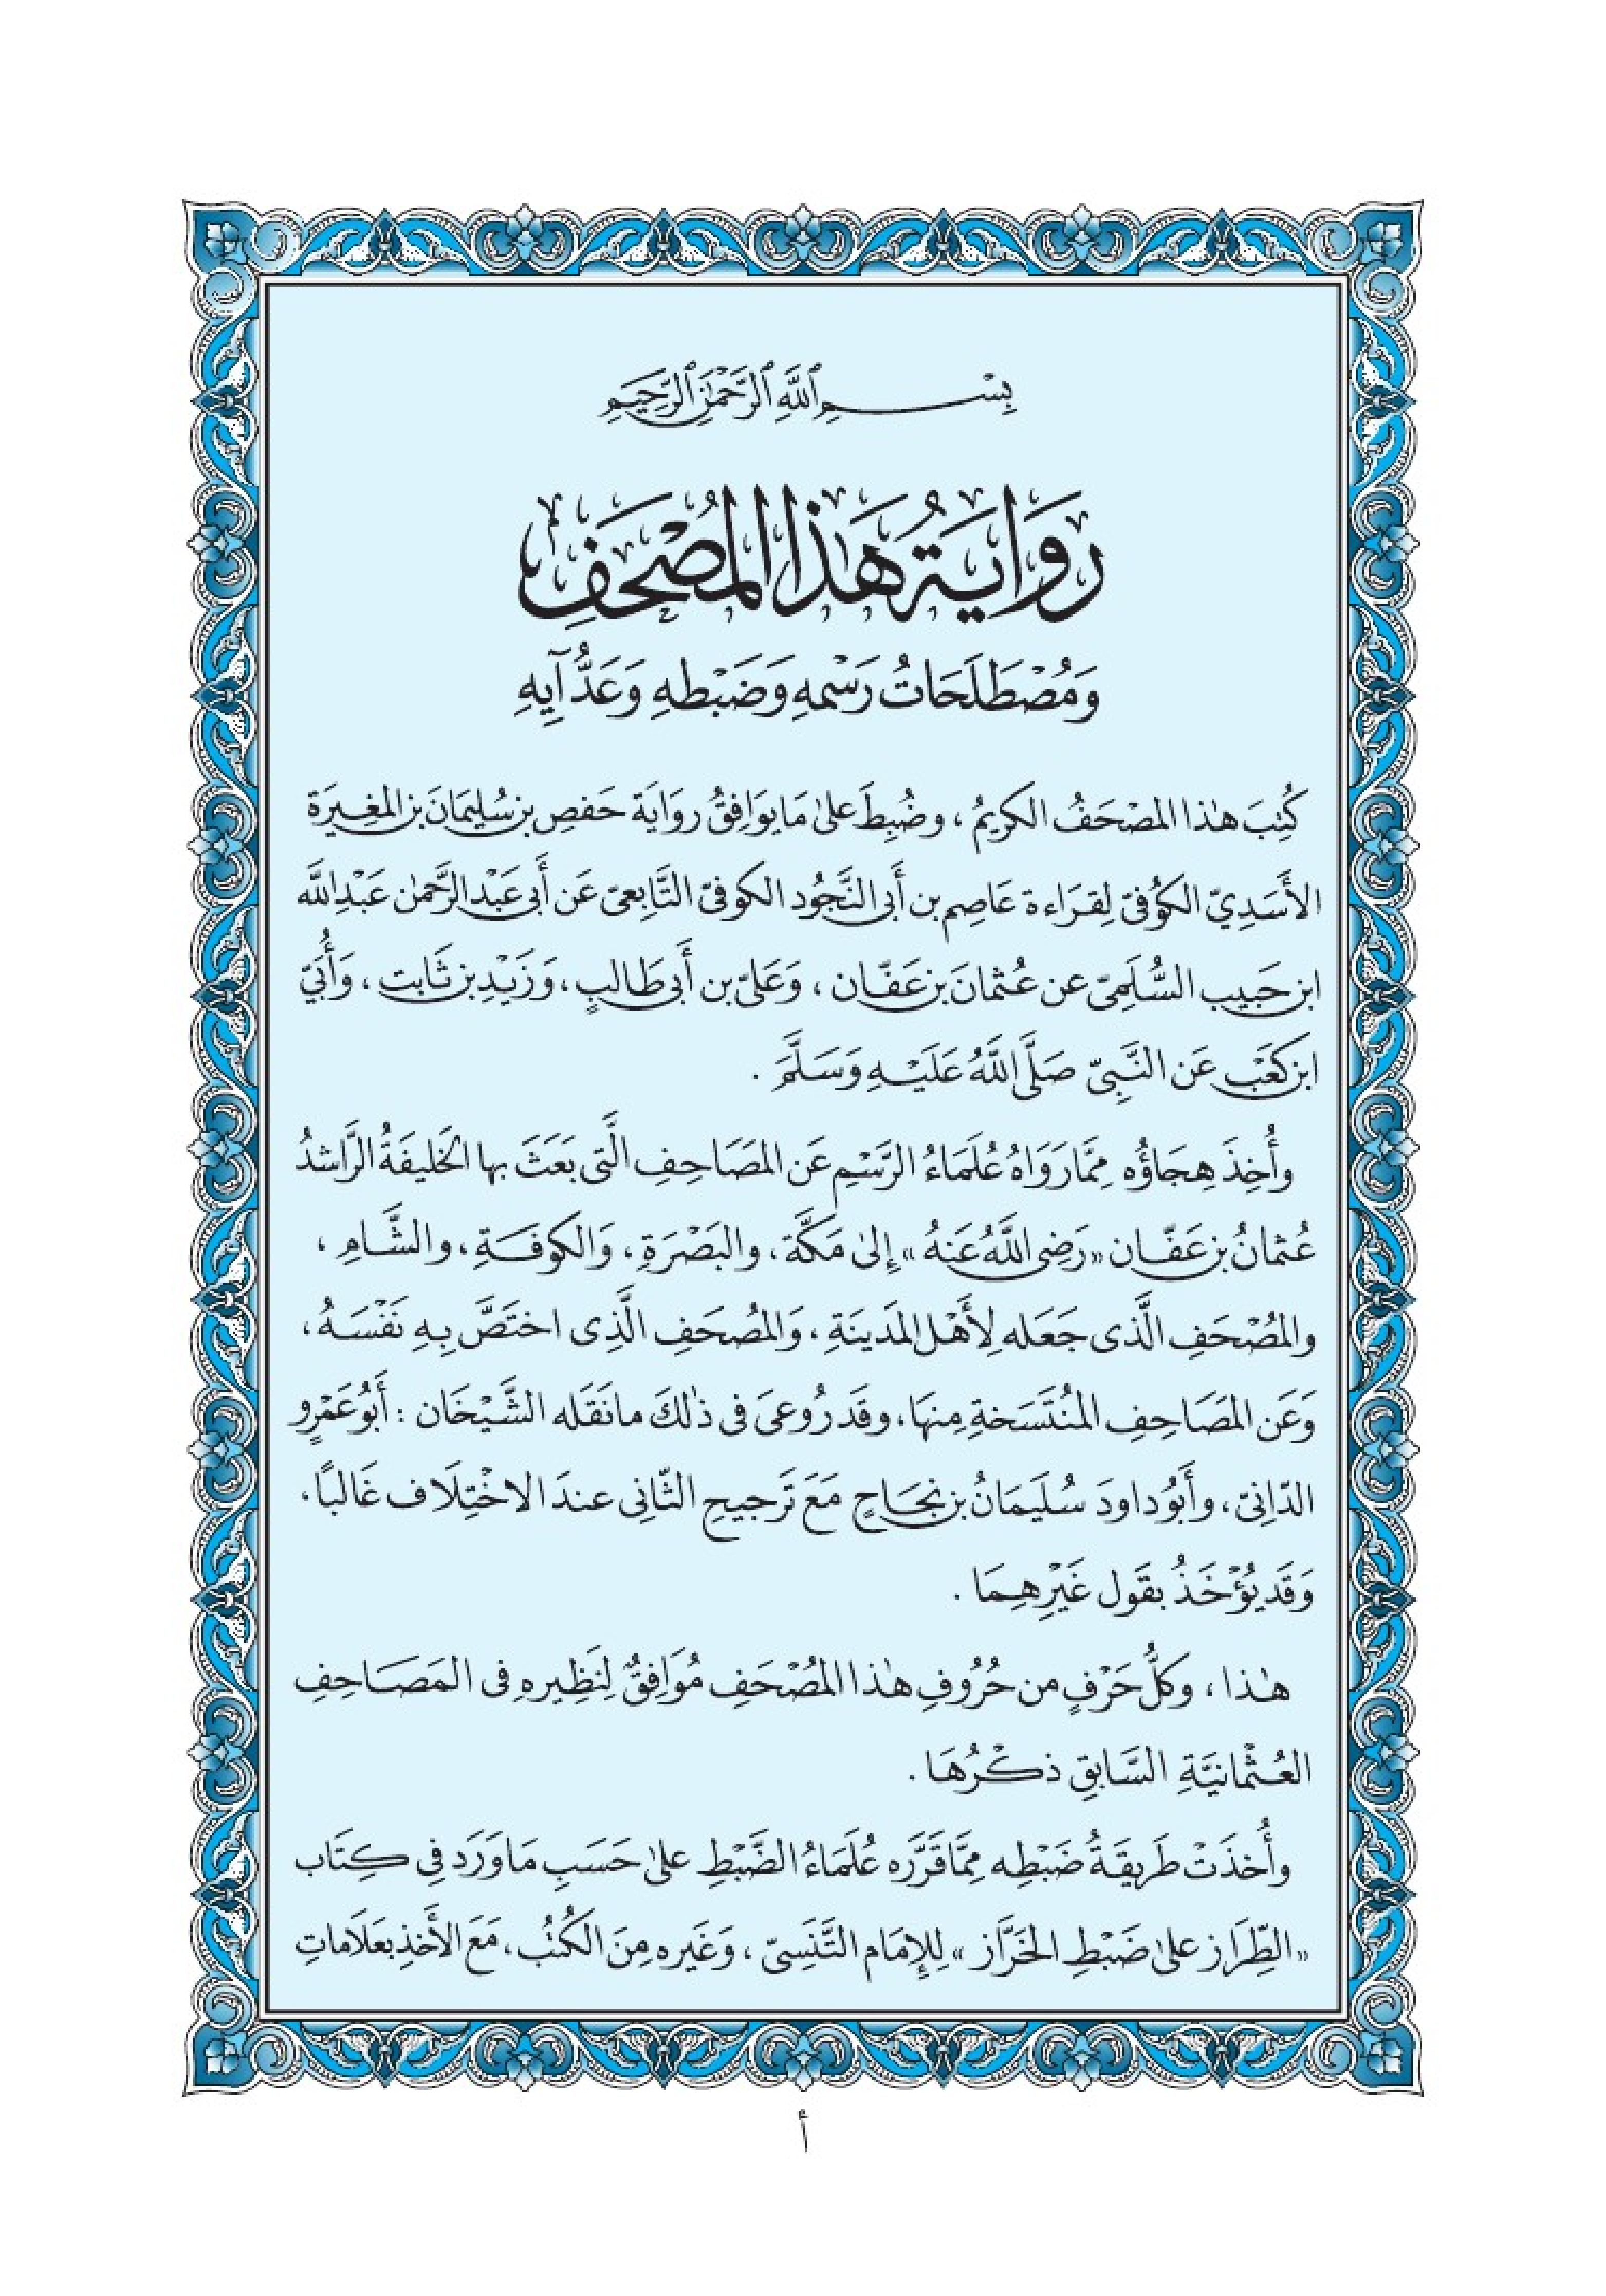 بِسْمِ ٱللَّهِ ٱلرَّحْمَٰنِ ٱلرَّحِيمِ
رِوَايَةُ هَذَا المُصْحَفِ
وَمُصْطَلَحَاتُ رَسْمِهِ وَضَبْطِهِ وَعَدِّ آيِهِ
كُتِبَ هٰذا المصْحَفُ الكريمُ ، وضُبِطَ علىٰ مَا يوَافِقُ روَايَة حَفصِ بن سُليمَانَ بن المغِيرَة
الأَسَدِيّ الكُوفىّ لِقرَاءة عَاصِم بن أَبى النَّجُود الكوفىّ التَّابعىّ عَن أَبى عَبْد الرَّحمٰن عَبْدِ اللَّه
ابن حَبيب السُّلَمىّ عن عُثمانَ بن عَفّان ، وَعَلىّ بن أَبى طَالبٍ ، وَزَيْدِ بن ثَابت ، وَأُبَىّ
ابن كَعْب عَن النَّبِىّ صَلَّى اللَّهُ عَلَيْهِ وَسَلَّمَ .
وأُخِذَ هِجَاؤُه مِمَّا رَوَاهُ عُلَمَاءُ الرَّسْمِ عَن المصَاحِفِ الَّتى بَعَثَ بها الخَليفَةُ الرَّاشدُ
عُثمانُ بن عَفّان «رَضِى اللَّهُ عَنهُ» إِلىٰ مَكَّةَ ، والبَصْرَةِ ، وَالكوفَةِ ، والشَّامِ ،
والمُصْحَفِ الَّذى جَعَله لِأَهْل المَدينَةِ ، وَالمُصْحَفِ الَّذِى اختَصَّ بِهِ نَفْسَهُ ،
وَعَن المصَاحِفِ المُنْتَسَخةِ مِنهَا ، وقَد رُوعىَ فى ذٰلكَ ما نَقَله الشَّيْخَان : أَبُو عَمْرٍو
الدّانِىّ ، وأَبُو داودَ سُلَيمَانُ بن نجَاحٍ مَعَ تَرجيحِ الثّانِى عندَ الاخْتِلَاف غَالبًا ،
وَقَد يُؤْخَذُ بقَول غَيْرِهِمَا .
هٰذا ، وكلُّ حَرْفٍ من حُرُوفِ هٰذا المُصْحَفِ مُوَافِقٌ لِنَظِيرِهِ فى المَصَاحِفِ
العُثْمانيَّةِ السَّابِقِ ذكْرُهَا .
وأُخذَتْ طَريقَةُ ضَبْطِه مِمَّا قَرَّرَه عُلَمَاءُ الضَّبْطِ علىٰ حَسَبِ مَا وَرَدَ فِى كِتَاب
«الطِّرَاز علىٰ ضَبْطِ الخَرَّاز» لِلإِمَام التَّنَسِىّ ، وَغَيره مِنَ الكُتُب ، مَعَ الأَخذِ بعَلَاماتِ
أ